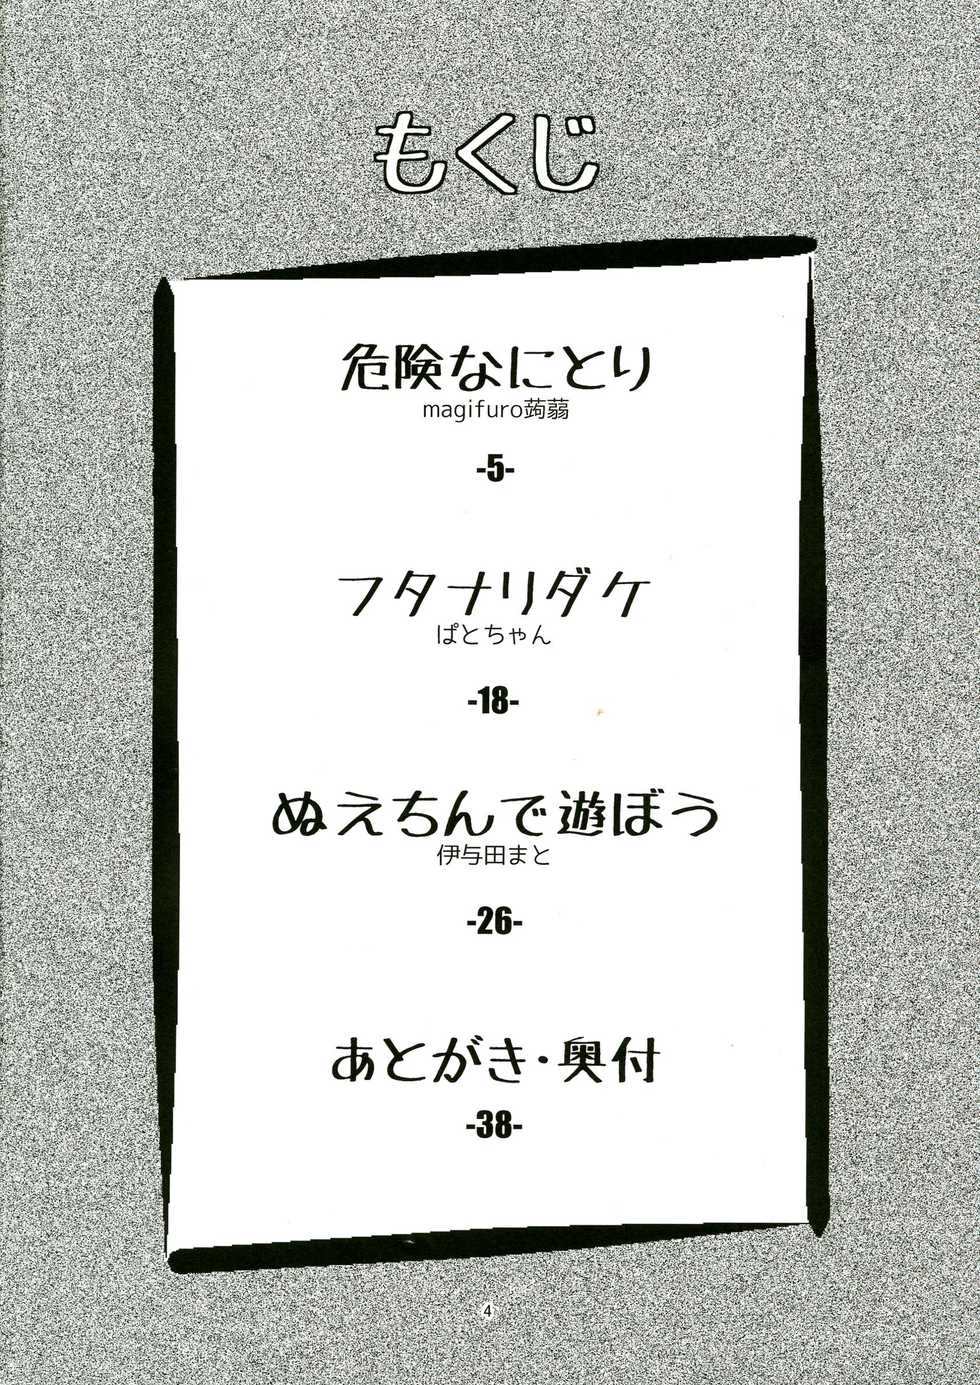 もくじ
危険なにとり
magifuro蒟蒻
-5-
フタナリダケ
ぱとちゃん
-18-
ぬえちんで遊ぼう
伊与田まと
-26-
あとがき・奥付
-38-
4